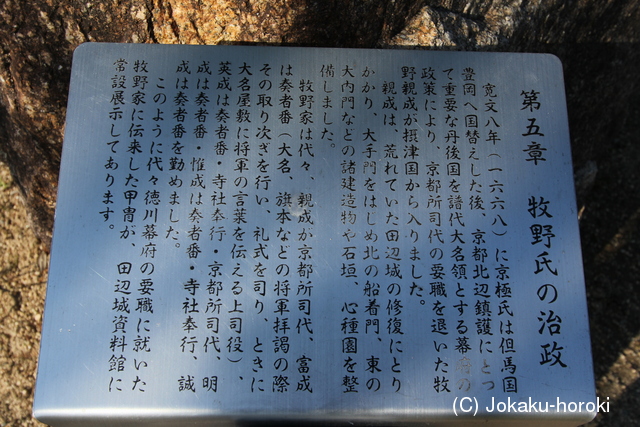 第五章　牧野氏の治政
寛文八年（一六六八）に京極氏は但馬国
豊岡へ国替えした後、京都北辺鎮護にとっ
て重要な丹後国を譜代大名領とする幕府の
政策により、京都所司代の要職を退いた牧
野親成が摂津国から入りました。
親成は、荒れていた田辺城の修復にとり
かかり、大手門をはじめ北の船着門、東の
大内門などの諸建造物や石垣、心種園を整
備しました。
牧野家は代々、親成が京都所司代、富成
は奏者番（大名、旗本などの将軍拝謁の際
その取り次ぎを行い、礼式を司り、ときに
大名屋敷に将軍の言葉を伝える上司役）、
英成は奏者番・寺社奉行・京都所司代、明
成は奏者番・惟成は奏者番・寺社奉行、誠
成は奏者番を勤めました。
このように代々徳川幕府の要職に就いた
牧野家に伝来した甲冑が、田辺城資料館に
常設展示してあります。
(C) Jokaku-horoki